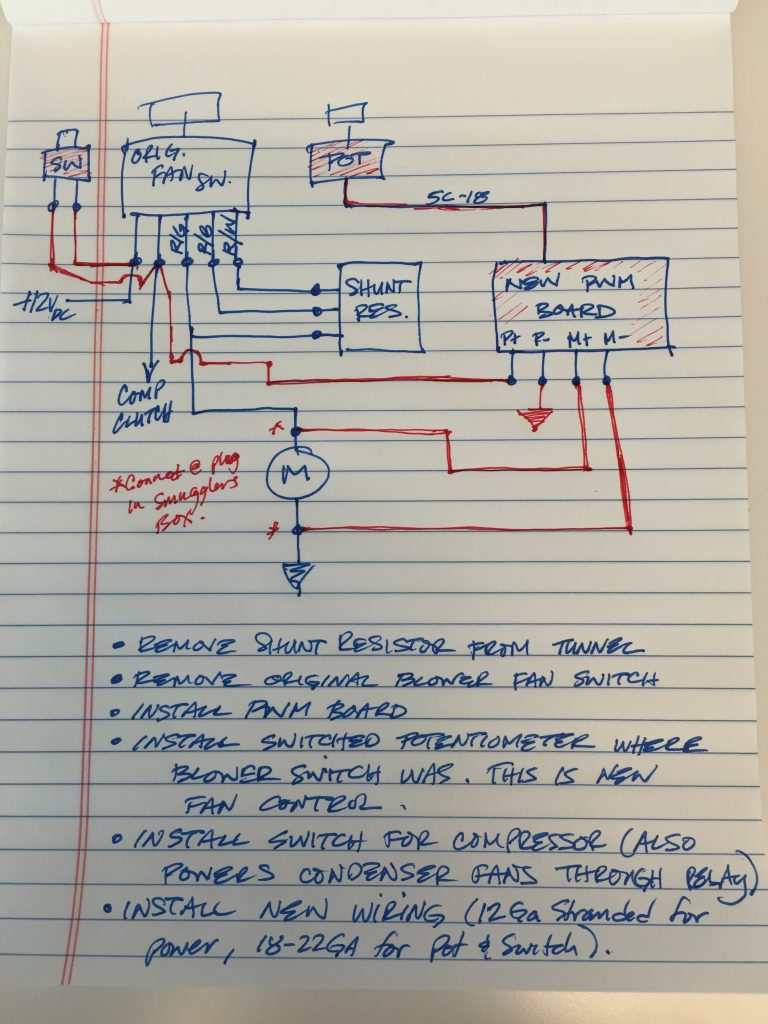 SW
ORIG.
FAN
SW.
POT
5C-18
R/G
R/B
B/W
+12VDC
SHUNT
RES.
NEW PWM
BOARD
P+ P- M+ M-
COMP
CLUTCH
*
M
*Connect @ plug
in Smugglers
Box.
*
• REMOVE SHUNT RESISTOR FROM TUNNEL
• REMOVE ORIGINAL BLOWER FAN SWITCH
• INSTALL PWM BOARD
• INSTALL SWITCHED POTENTIOMETER WHERE
BLOWER SWITCH WAS. THIS IS NEW
FAN CONTROL.
• INSTALL SWITCH FOR COMPRESSOR (ALSO
POWERS CONDENSER FANS THROUGH RELAY)
• INSTALL NEW WIRING (12Ga Stranded for
power, 18-22GA for Pot & Switch).